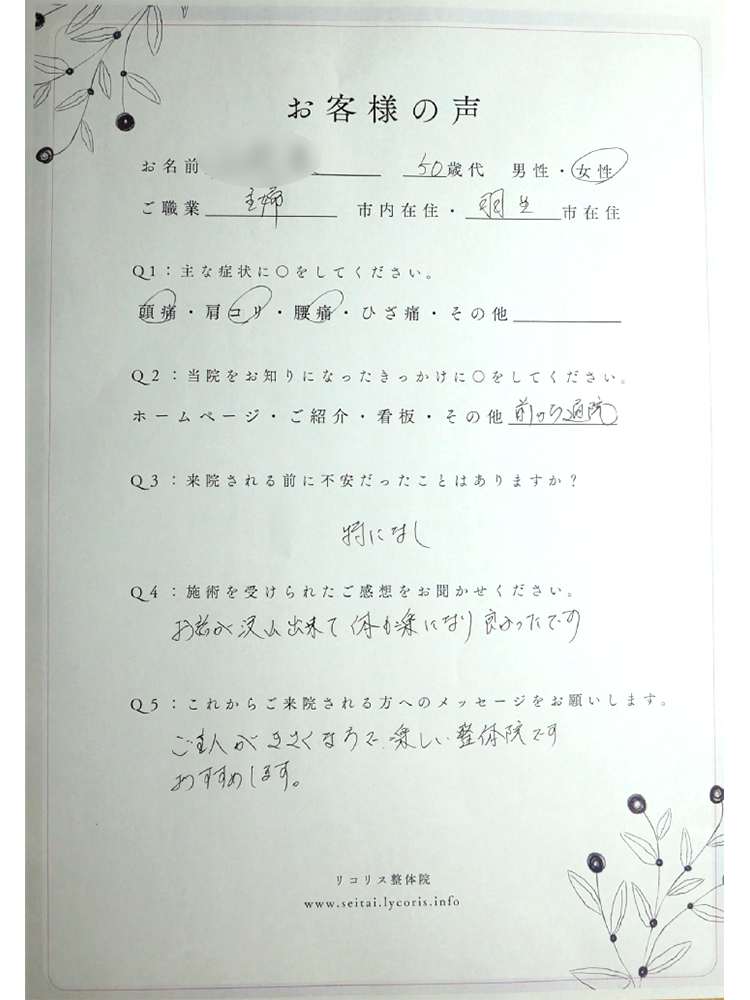 お客様の声
お名前 50歳代 男性・女性
ご職業 主婦 市内在住・羽生市在住
Q1：主な症状に〇をしてください。
頭痛・肩コリ・腰痛・ひざ痛・その他
Q2：当院をお知りになったきっかけに〇をしてください。
ホームページ・ご紹介・看板・その他 前から通院
Q3：来院される前に不安だったことはありますか？
特になし
Q4：施術を受けられたご感想をお聞かせください。
お話が沢山出来て 体も楽になり 良かったです
Q5：これからご来院される方へのメッセージをお願いします。
ご主人が きさくな方で、楽しい整体院です
おすすめします。
リコリス整体院
www.seitai.lycoris.info